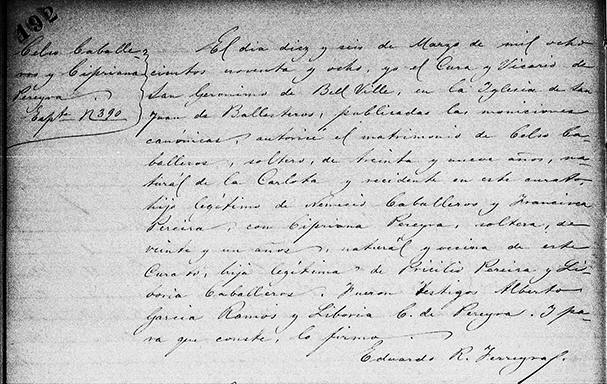 192
Celso Caballe-
ros y Cipriana
Pereyra
Expte N 390
El dia diez y seis de Marzo de mil ocho
cientos noventa y ocho, yo el Cura y Vicario de
San Geronimo de Bell Ville, en la Iglesia de San
Juan de Ballesteros, publicadas las moniciones
canónicas, autoricé el matrimonio de Celso Ca-
balleros, soltero, de treinta y nueve años, na-
tural de la Carlota y recidente en este curato,
hijo legítimo de Nemecio Caballeros y Francisca
Pereira, con Cipriana Pereyra, soltera, de
veinte y un años, natural y vecina de este
Curato, hija legítima de Pereira y Li-
boria Caballeros. Fueron testigos Alberto
Garcia Ramos y Liboria C. de Pereyra. Y pa-
ra que conste, lo firmo.
Eduardo R. Ferreyra